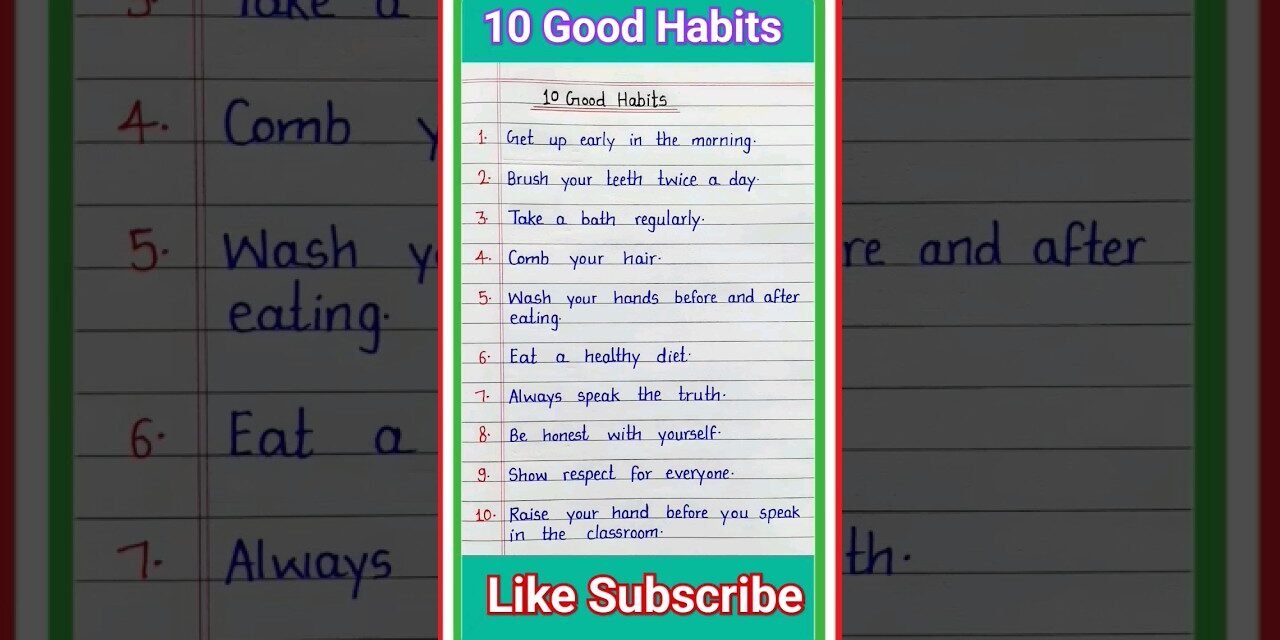 10 Good Habits
10 Good Habits
1. Get up early in the morning.
2. Brush your teeth twice a day.
3. Take a bath regularly.
4. Comb your hair.
5. Wash your hands before and after
eating.
6. Eat a healthy diet.
7. Always speak the truth.
8. Be honest with yourself.
9. Show respect for everyone.
10. Raise your hand before you speak
in the classroom.
Like Subscribe
3. Take a
4. Comb y
5. Wash yo
eating.
6. Eat a
7. Always
re and after
th.